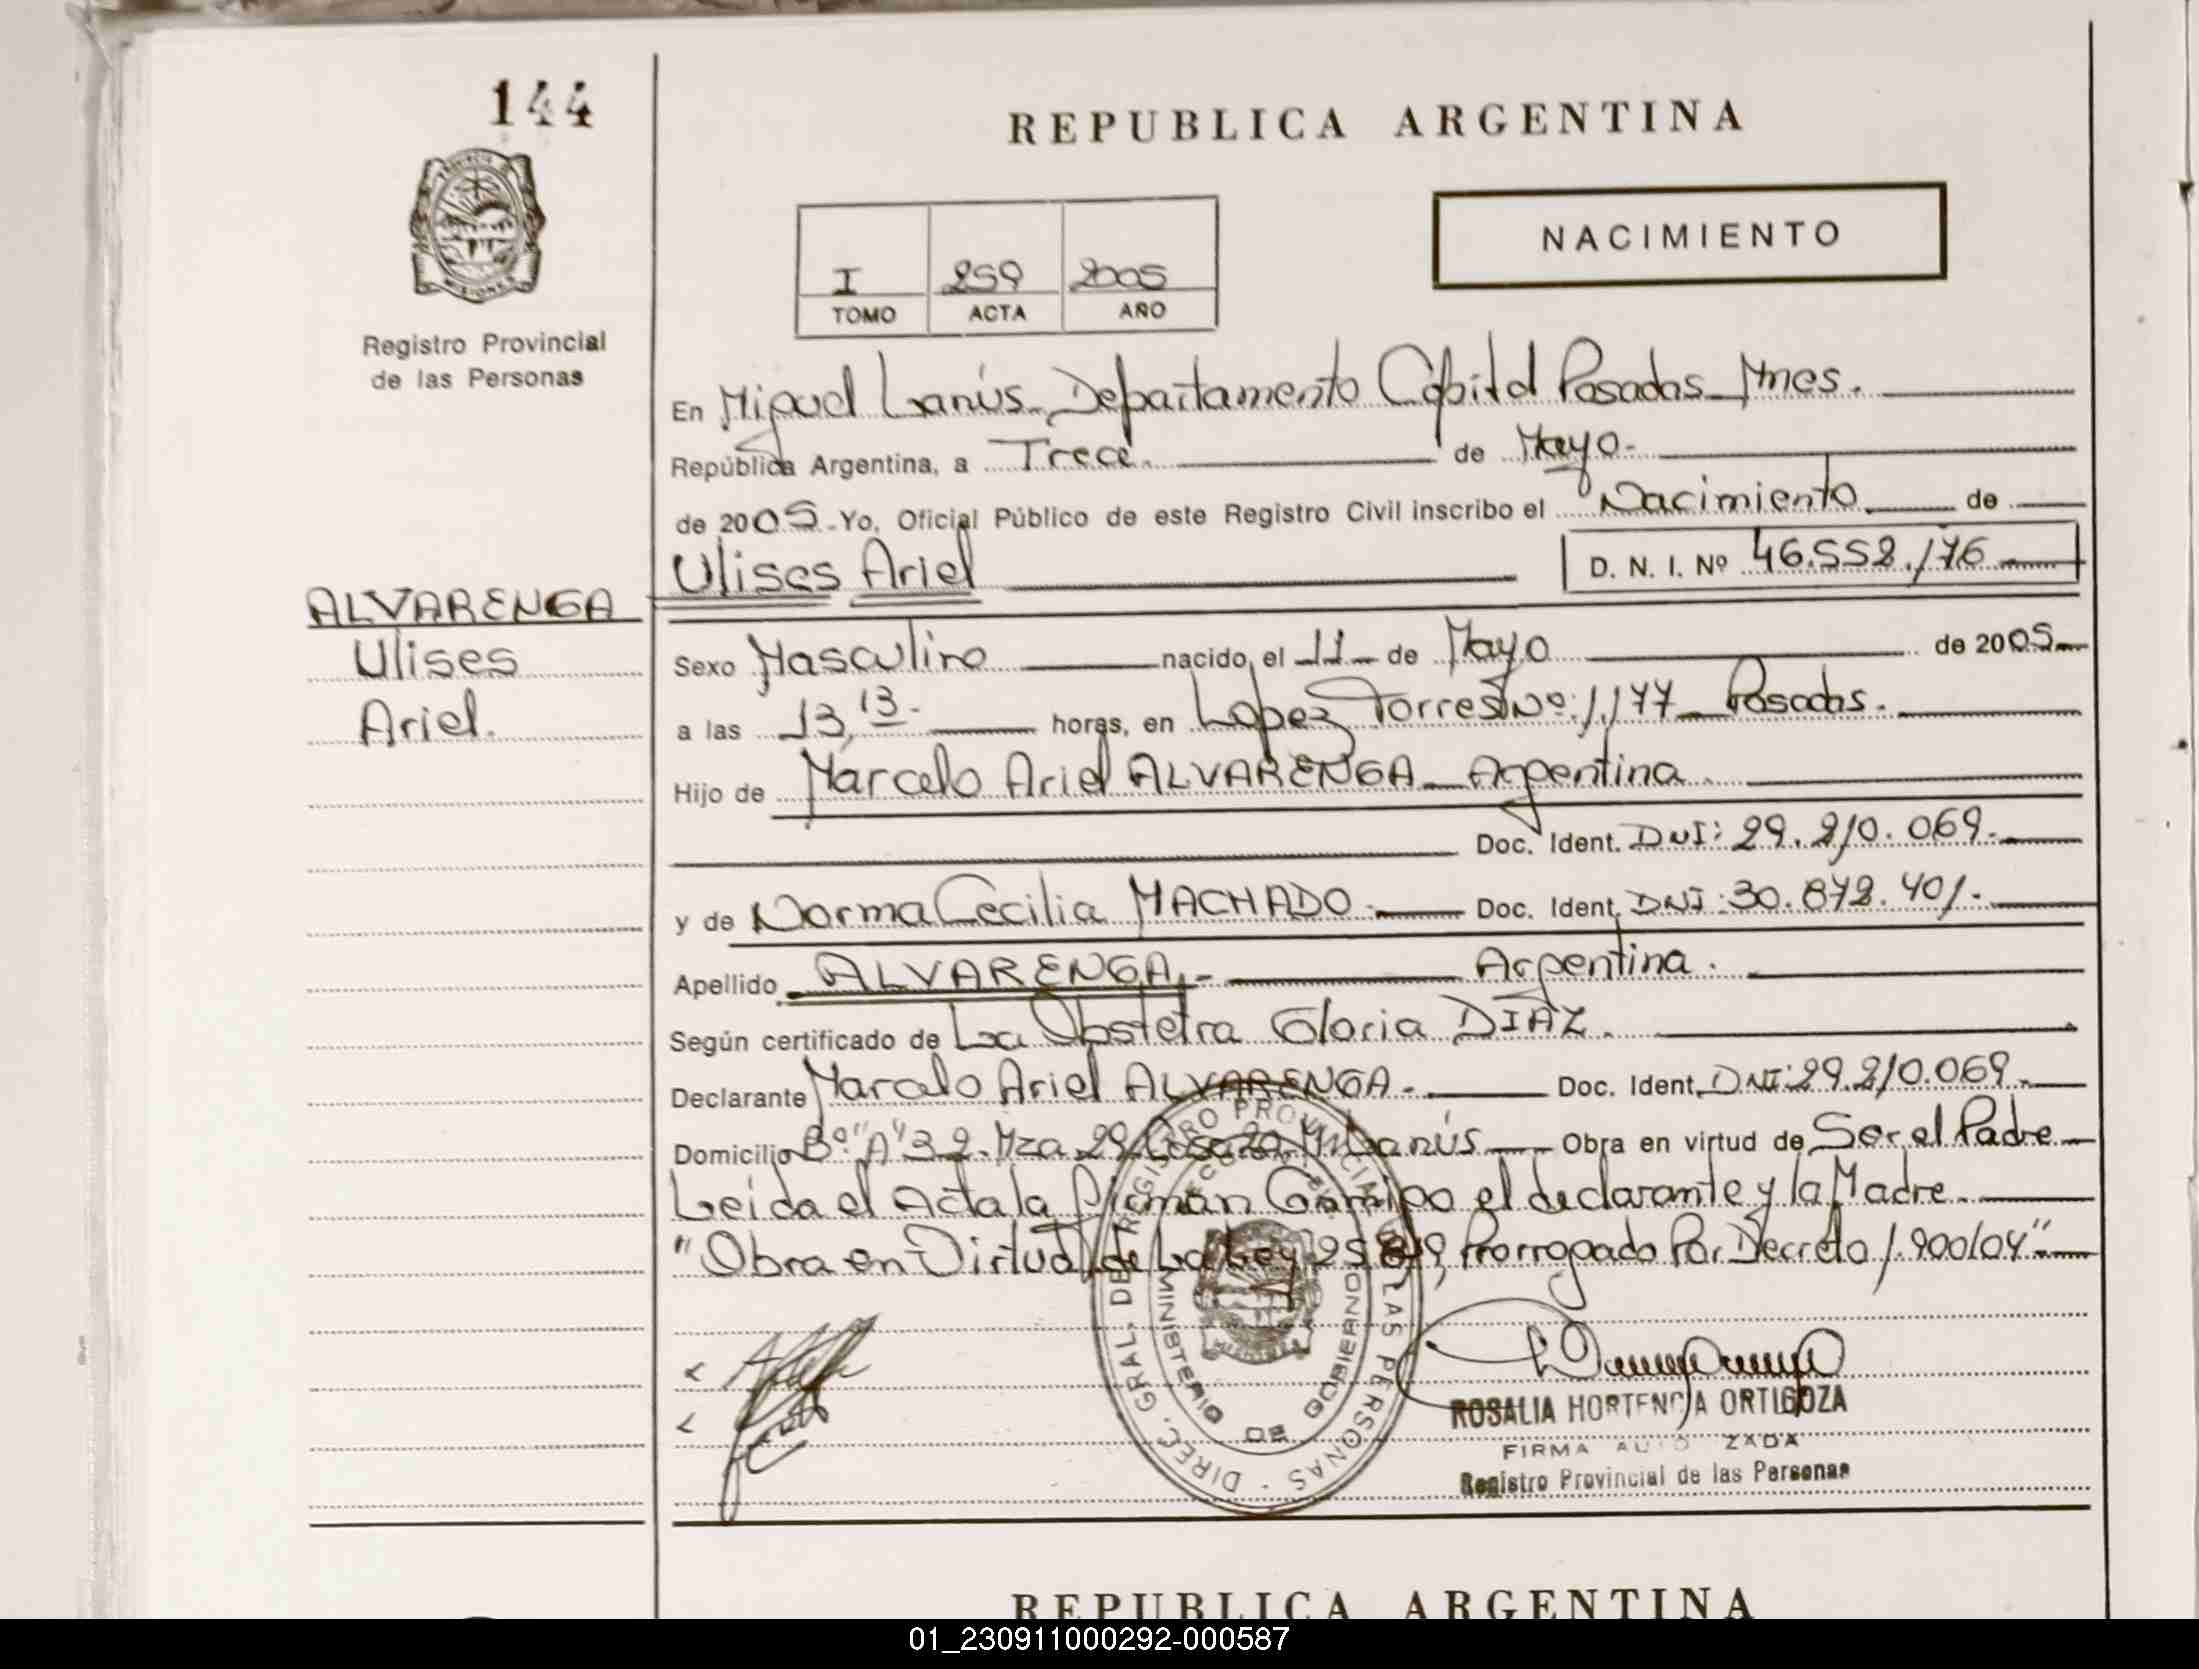 144
REPUBLICA ARGENTINA
NACIMIENTO
I 259 2005
TOMO ACTA AÑO
Registro Provincial
de las Personas
En Miguel Lanús Departamento Capital Posadas Mnes.
República Argentina, a Trece. de Mayo.
de 2005 Yo, Oficial Público de este Registro Civil inscribo el Nacimiento de
Ulises Ariel D. N. I. Nº 46.552.176
ALVARENGA
Ulises
Ariel.
Sexo Masculino nacido el 11 de Mayo de 2005
a las 13,13. horas, en Lopez Torres Nº: 1.177 Posadas.
Hijo de Marcelo Ariel ALVARENGA Argentina
Doc. Ident. DNI: 29.210.069.
y de Norma Cecilia MACHADO. Doc. Ident. DNI: 30.872.401.
Apellido ALVARENGA.- Argentina.
Según certificado de La Obstetra Gloria DIAZ.
Declarante Marcelo Ariel ALVARENGA. Doc. Ident. DNI: 29.210.069.
Domicilio Bº "A" 32. Mza 29 Casa 20 M. Lanús Obra en virtud de Ser el Padre
Leida el Acta la firman Conmigo el declarante y la Madre.
"Obra en Virtud de La Ley 25819, Prorrogado Por Decreto 1.900/04"
DIREC. GRAL. DE REGISTRO PROVINCIAL DE LAS PERSONAS
MINISTERIO DE GOBIERNO
ROSALIA HORTENCIA ORTIGOZA
FIRMA AUTORIZADA
Registro Provincial de las Personas
REPUBLICA ARGENTINA
01_230911000292-000587